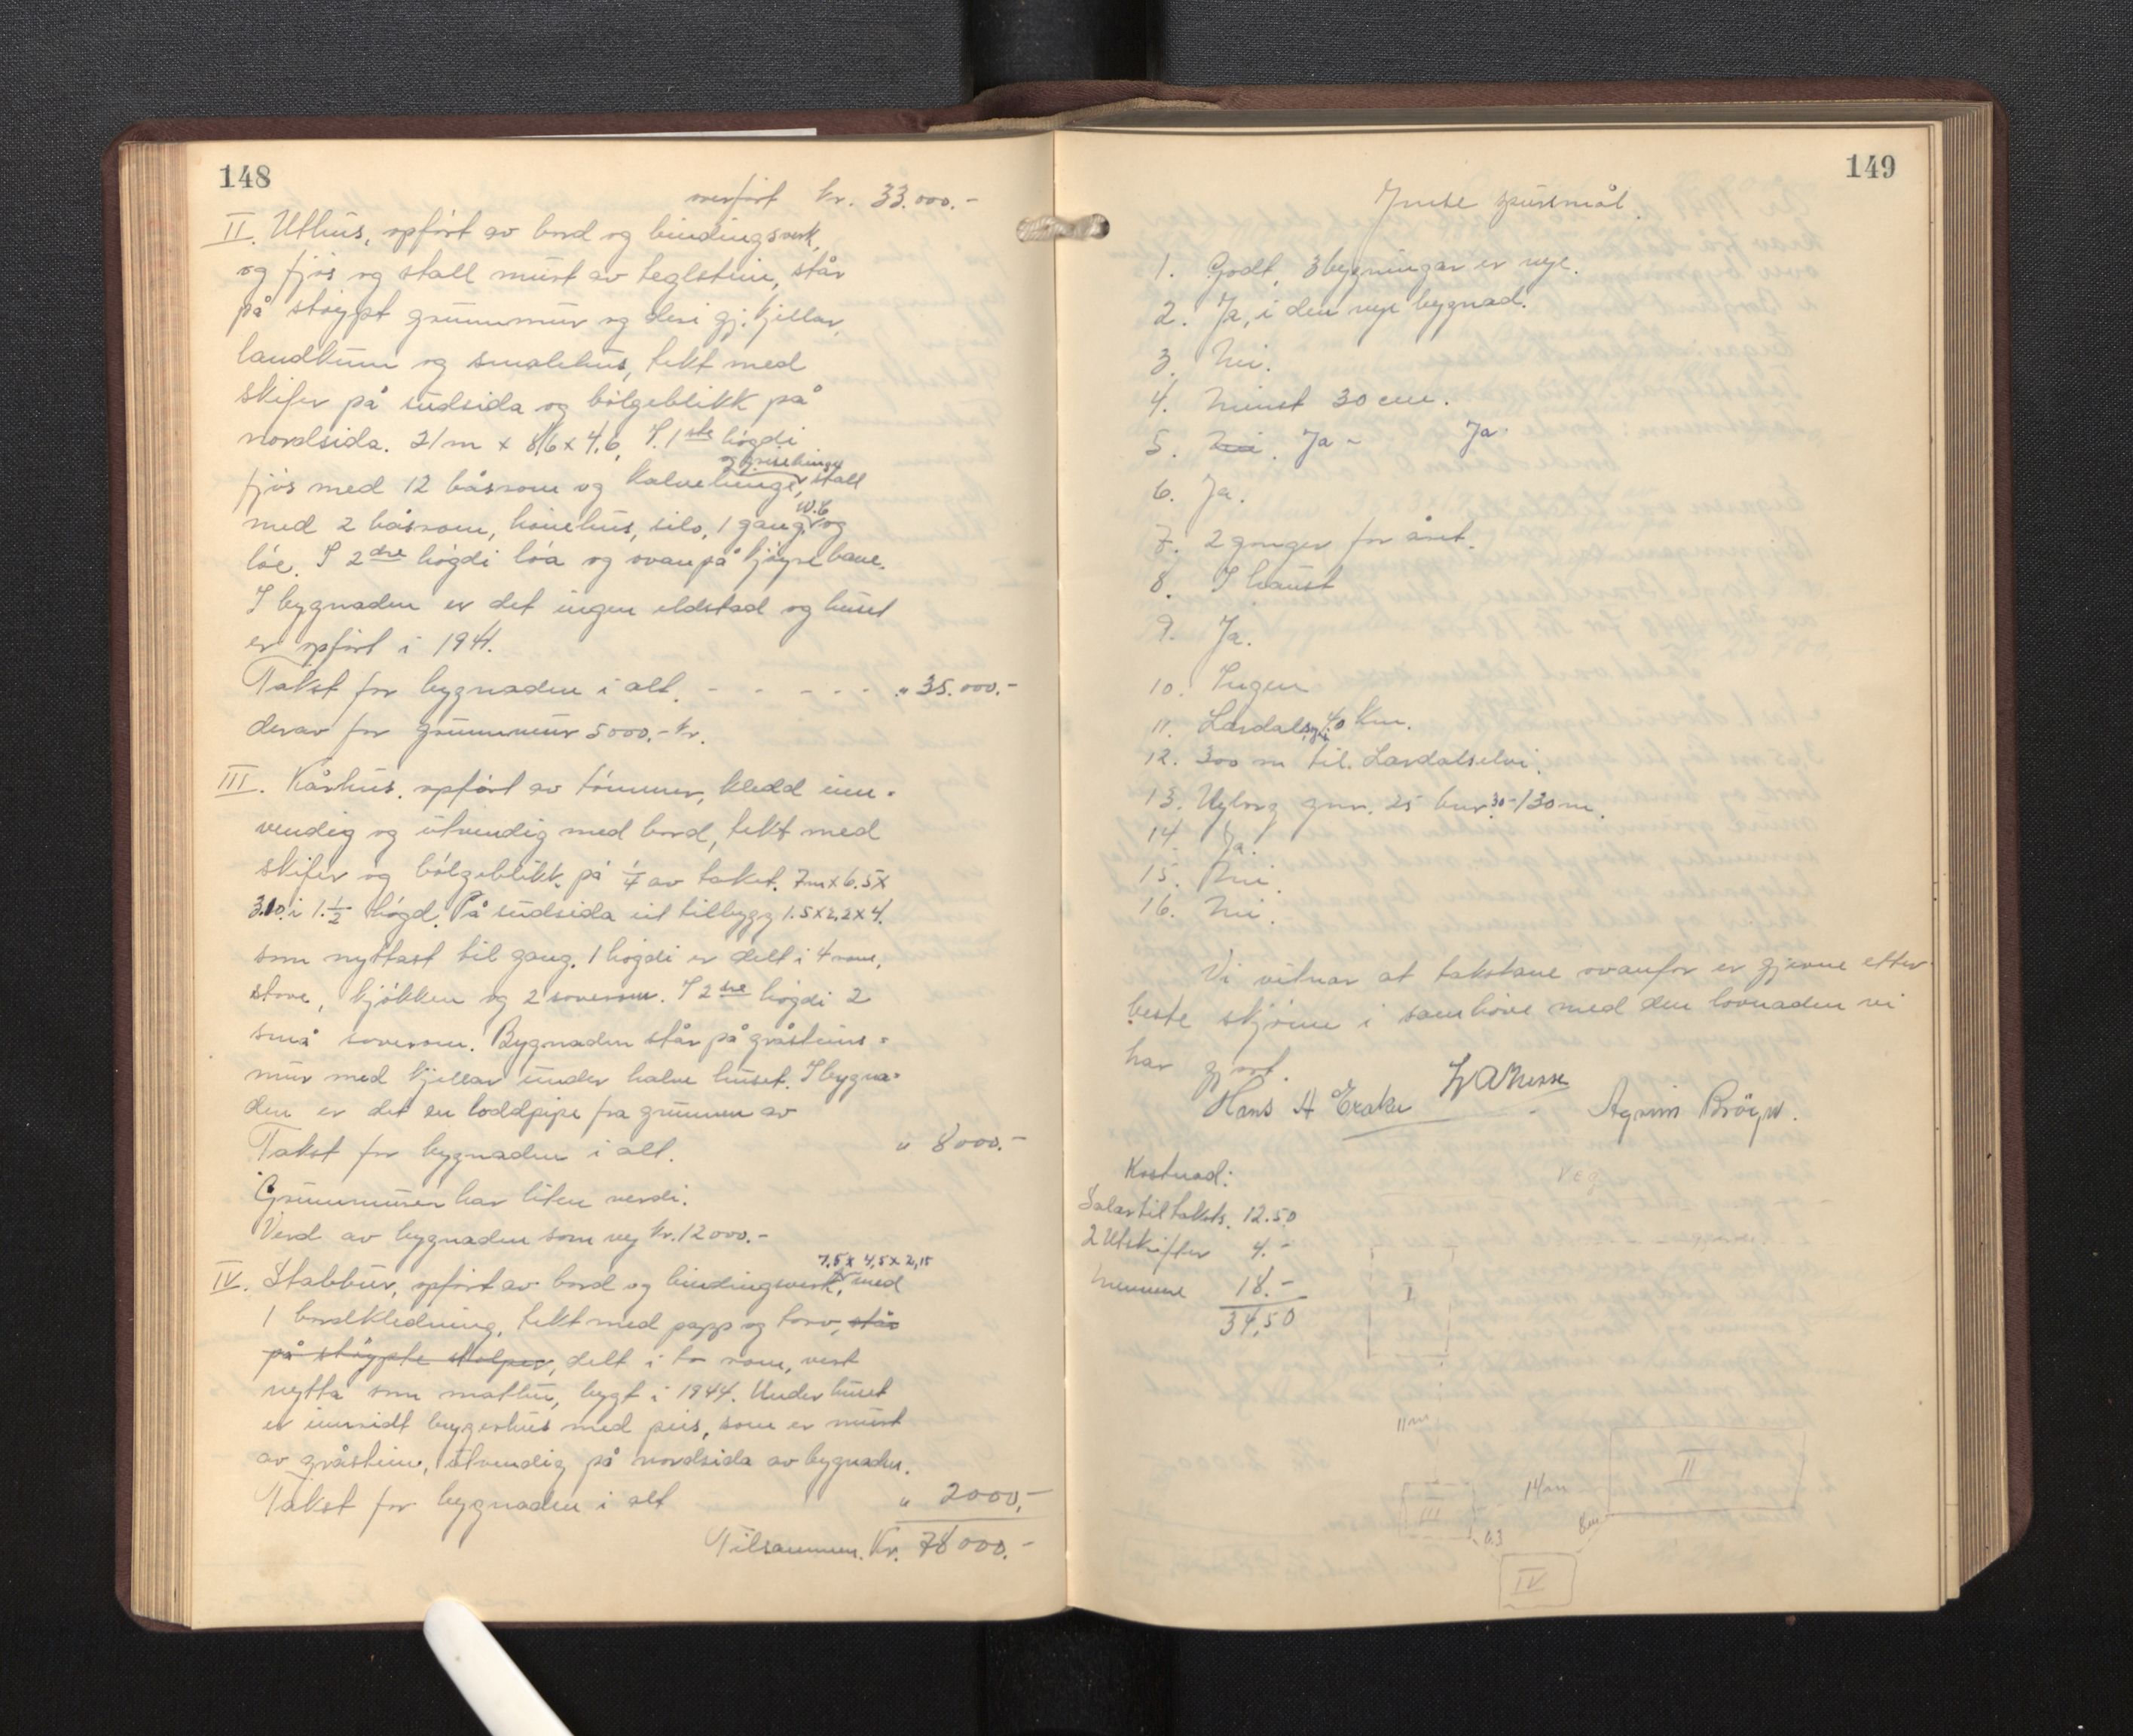 148
overført kr. 33.000.-
II. Uthus, opført av bord og bindingsverk,
og fjøs og stall murt av teglstein, står
på støypt grunnmur og deri gj. kjellar,
landkum og smalehus, tekt med
skifer på sudsida og bølgeblikk på
nordsida. 21m x 8,6 x 4,6. I 1ste høgdi
og grisebinge
fjøs med 12 båsrom og kalvebinge, stall
w.c
med 2 båsrom, hønehus, silo, 1 gang, og
løe. I 2dre høgdi løa og ovanpå kjøyrebane.
I bygnaden er det ingen eldstad og huset
er opført i 1941.
Takst for bygnaden i alt. - - - - - " 35.000.-
derav for grunnmur 5000.- kr.
III. Kårhus, opført av tømmer, kledd inn-
vendig og utvendig med bord, tekt med
skifer og bølgeblikk på 1/4 av taket. 7m x 6.5 x
3.10 i 1.1/2 høgd. På sudsida eit tilbygg 1.5 x 2,2 x 4.
som nyttast til gang. 1 høgdi er delt i 4 rom,
stove, kjøkken og 2 soverom. I 2dre høgdi 2
små soverom. Bygnaden står på gråsteins-
mur med kjellar under halve huset. I bygna-
den er det en loddpipe fra grunnen av
Takst for bygnaden i alt. " 8000.-
Grunnmuren har liten verdi.
Verd av bygnaden som ny kr. 12000.-
7,5 x 4,5 x 2,15
IV. Stabbur, opført av bord og bindingsverk, med
1 bordkledning, tekt med papp og torv, står
på støypte stolper, delt i to rom, vert
nytta som matbu, bygt i 1944. Under huset
er innreidt bryggerhus med peis, som er murt
av gråstein, utvendig på nordsida av bygnaden.
Takst for bygnaden i alt " 2000,-
Tilsammen. Kr. 78000.-
149
Ymse spursmål.
1. Godt, 3 bygningar er nye.
2. Ja, i den nye bygnad.
3. Nei.
4. Minst 30 cm.
5. Nei. Ja - Ja
6. Ja.
7. 2 gonger for året.
8. I haust
9. Ja.
10. Ingen
11. Lærdalsøyri 40 Km.
12. 300 m til Lærdalselvi.
13. Nyborg gnr. 25 bnr. 30 - 130 m.
14. Ja.
15. Nei.
16. Nei.
Vi vitnar at takstane ovanfor er gjevne etter
beste skjønn i samhøve med den lovnaden vi
har gjort.
Hans A Eraker
Kostnad:
Salær til takstn. 12.50
2 Utskifter 4.-
18.-
34,50
Veg
I
11m
II
14m
III
8m
6.3
IV